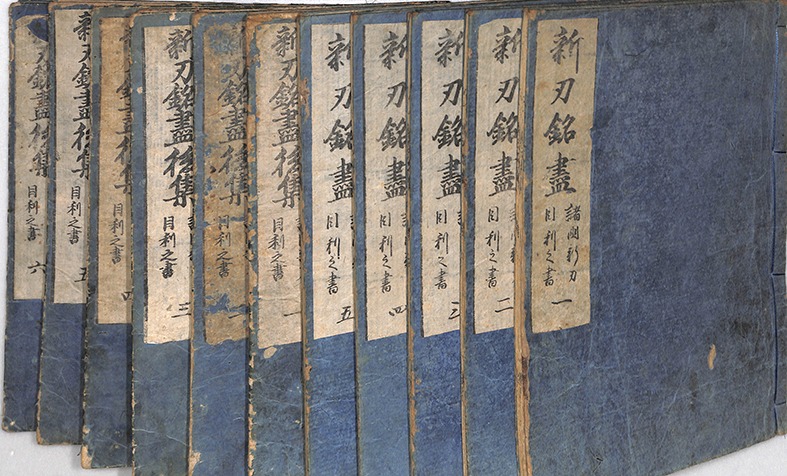 新刃銘盡
諸國新刀
目利之書
一
新刃銘盡
目利之書
二
新刃銘盡
目利之書
三
新刃銘盡
目利之書
四
新刃銘盡
目利之書
五
新刃銘盡後集
目利之書
一
刃銘盡後集
目利之書
新刃銘盡後集
目利之書
三
刃銘盡後集
目利之書
四
新刃銘盡後集
目利之書
五
刃銘盡後集
目利之書
六